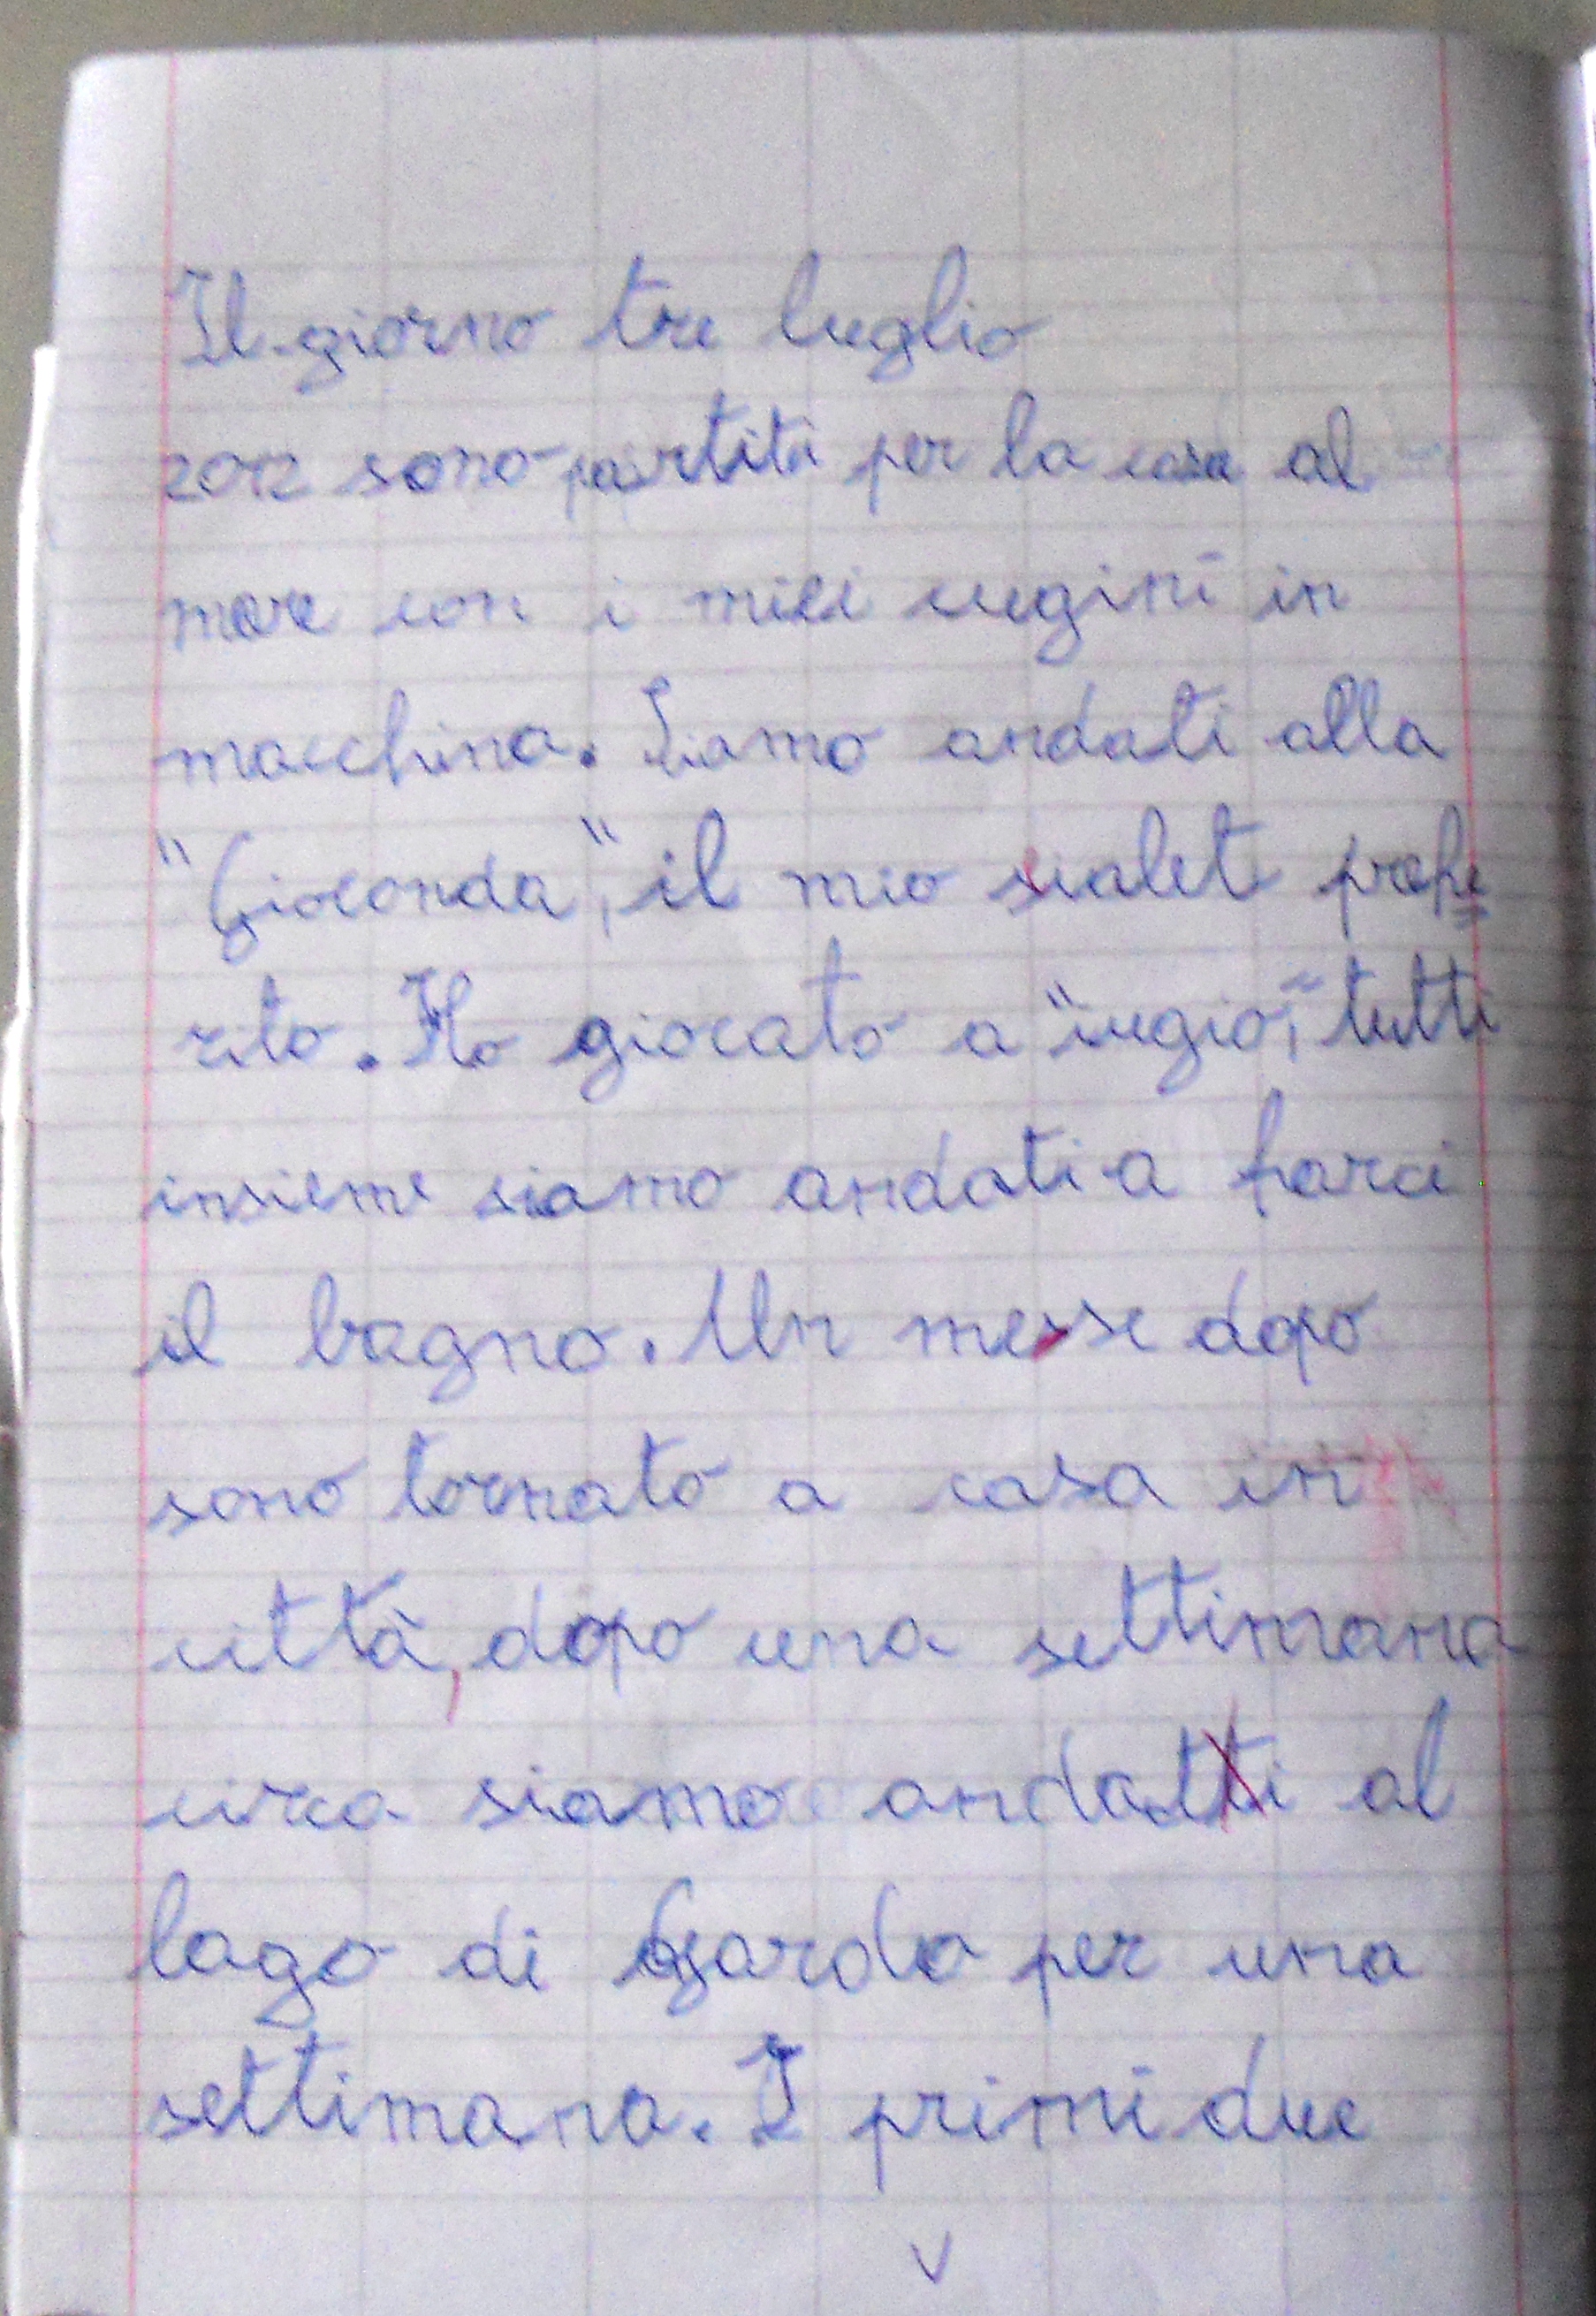 Il giorno tre luglio
2012 sono partiti per la casa al
mare con i miei cugini in
macchina. Siamo andati alla
"Gioconda", il mio scialet prefe
rito. Ho giocato a "iugio", tutti
insieme siamo andati a farci
il bagno. Un messe dopo
sono tornato a casa in
città, dopo una settimana
circa siamo andatti al
lago di Garda per una
settimana. I primi due